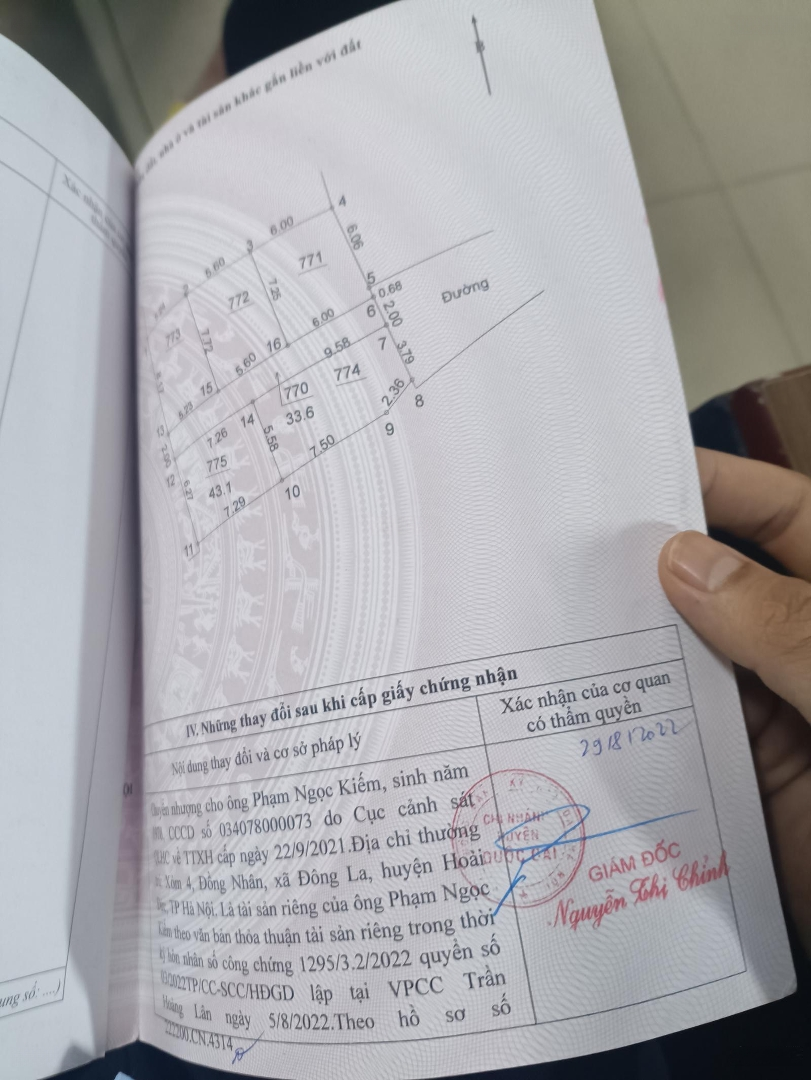 ở và tài sản khác gắn liền với đất
4
6.00
3
6.06
6.60
771
2
5
7.25
0.68
Đường
772
6
2.00
773
7.72
16
6.00
7
3.79
9.58
5.60
15
774
8
2.36
770
33.6
14
9
13
7.26
5.58
7.50
12
775
43.1
6.27
10
7.29
11
IV. Những thay đổi sau khi cấp giấy chứng nhận
Nội dung thay đổi và cơ sở pháp lý
Xác nhận của cơ quan
có thẩm quyền
29/8/2022
nhượng cho ông Phạm Ngọc Kiếm, sinh năm
CCCD số 034078000073 do Cục cảnh sát
về TTXH cấp ngày 22/9/2021.Địa chỉ thường
Xóm 4, Đồng Nhân, xã Đông La, huyện Hoài
TP Hà Nội. Là tài sản riêng của ông Phạm Ngọc
theo văn bản thỏa thuận tài sản riêng trong thời
hôn nhân số công chứng 1295/3.2/2022 quyển số
03/2022TP/CC-SCC/HĐGD lập tại VPCC Trần
Hoàng Lân ngày 5/8/2022.Theo hồ sơ số
222200.CN.4314
CHI NHÁNH
HUYỆN
QUỐC OAI
GIÁM ĐỐC
Nguyễn Thị Chinh
Xác nhận